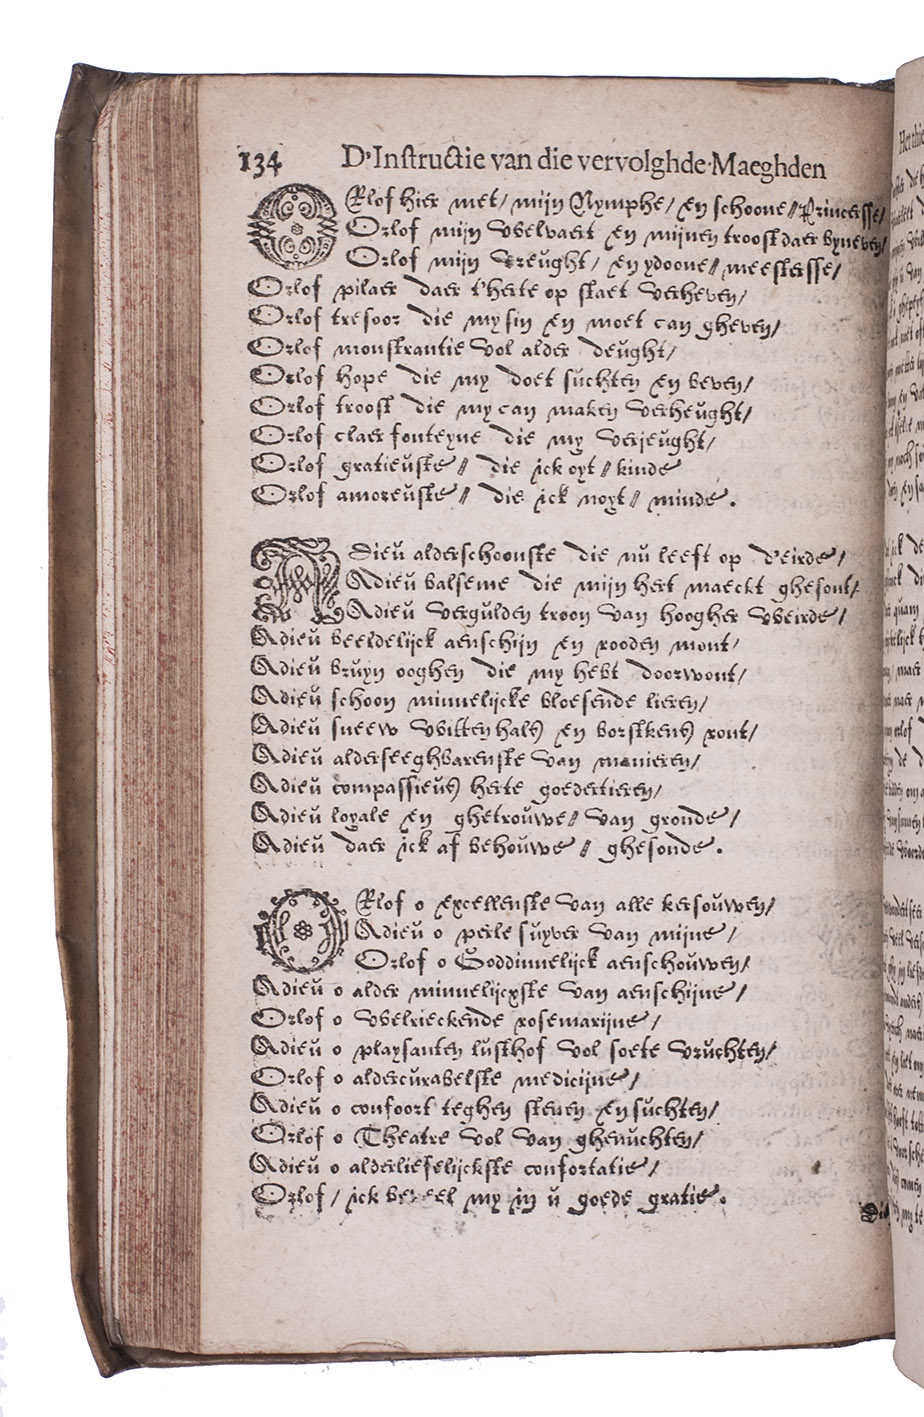 134 D'Instructie van die vervolghde Maeghden
ORlof hier met / mijn Nymphe / en schoone // Princersse /
Orlof mijn vvelvaert en mijnen troost daer by neven /
Orlof mijn vreught / en ydoone // meestersse /
Orlof pilaer daer t'herte op staet verheven /
Orlof tresoor die my sin en moet can gheven /
Orlof monstrantie vol alder deught /
Orlof hope die my doet suchten en beven /
Orlof troost die my can maken verheught /
Orlof claer fonteyne die my verjeught /
Orlof gratieuste // die ick oyt // kinde
Orlof amoreuste // die ick noyt // minde.
ADieu alderschoonste die nu leeft op d'eirde /
Adieu balseme die mijn hert maeckt ghesont /
Adieu vergulden troon van hoogher vveirde /
Adieu beeldelijck aenschijn en rooden mont /
Adieu bruyn ooghen die my hebt doorwont /
Adieu schoon minnelijcke bloesende lieren /
Adieu sneew vvitten hals en borstkens ront /
Adieu alderseeghbarenste van manieren /
Adieu compassieus herte goedertieren /
Adieu loyale en ghetrouwe // van gronde /
Adieu daer ick af behouwe // ghesonde.
ORlof o excellenste van alle kersouwen /
Adieu o perle suyver van mijne /
Orlof o Goddinnelijck aenschouwen /
Adieu o alder minnelijcxste van aenschijne /
Orlof o vvelrieckende rosemarijne /
Adieu o playsanten lusthof vol soete vruchten /
Orlof o aldercurabelste medicijne /
Adieu o confoort teghen stenen en suchten /
Orlof o Theatre vol van ghenuchten /
Adieu o alderliefelijckste confortatie /
Orlof / ick beveel my in u goede gratie.